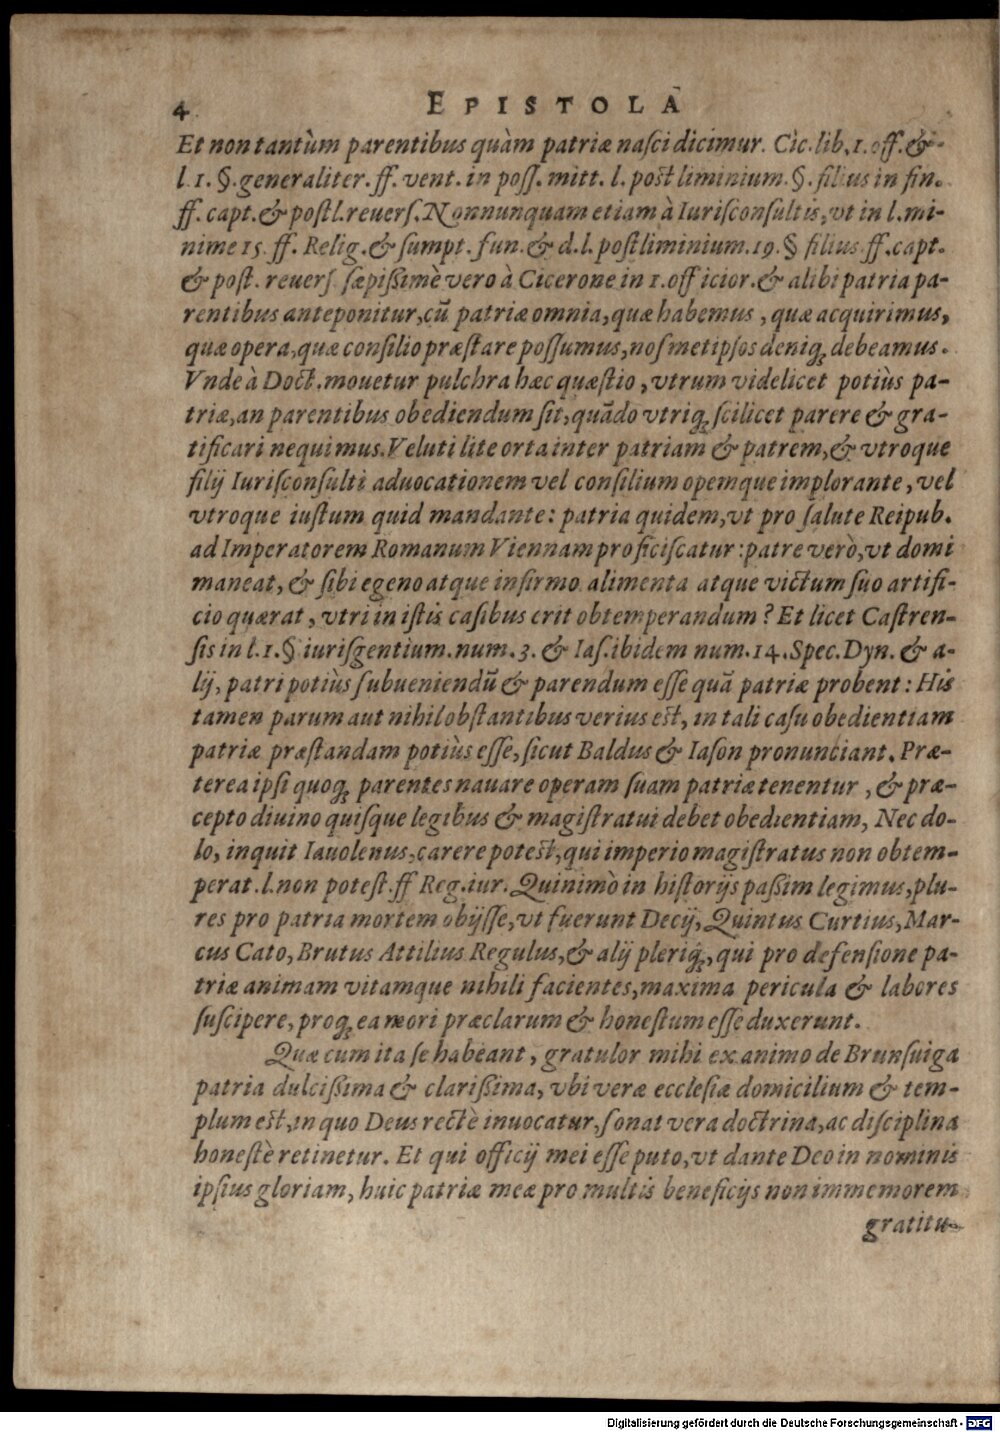 4 EPISTOLA
Et non tantùm parentibus quàm patriæ naſci dicimur. Cic. lib. 1. off. &
l 1. §. generaliter. ff. vent. in poſſ. mitt. l. poſt liminium. §. filius in fin.
ff. capt. & poſt l. reuerſ. Nonnunquam etiam à Iuriſconſultis, vt in l. mi-
nime 15. ff. Relig. & ſumpt. fun. & d. l. poſtliminium. 19. § filius. ff. capt.
& poſt. reuerſ. ſæpißimè vero à Cicerone in 1. officior. & alibi patria pa-
rentibus anteponitur, cũ patriæ omnia, quæ habemus, quæ acquirimus,
quæ opera, quæ conſilio præſtare poſſumus, noſmetipſos deniq; debeamus.
Vnde à Doct. mouetur pulchra hæc quæſtio, vtrum videlicet potiùs pa-
triæ, an parentibus obediendum ſit, quãdo vtriq; ſcilicet parere & gra-
tificari nequimus. Veluti lite orta inter patriam & patrem, & vtroque
filij Iuriſconſulti aduocationem vel conſilium opemque implorante, vel
vtroque iuſtum quid mandante: patria quidem, vt pro ſalute Reipub.
ad Imperatorem Romanum Viennam proficiſcatur: patre verò, vt domi
maneat, & ſibi egeno atque infirmo alimenta atque victum ſuo artifi-
cio quærat, vtri in iſtis caſibus erit obtemperandum? Et licet Caſtren-
ſis in l. 1. § iuriſgentium. num. 3. & Iaſ. ibidem num. 14. Spec. Dyn. & a-
lij, patri potiùs ſubueniendũ & parendum eſſe quã patriæ probent: His
tamen parum aut nihil obſtantibus verius eſt, in tali caſu obedientiam
patriæ præſtandam potiùs eſſe, ſicut Baldus & Iaſon pronunciant. Præ-
terea ipſi quoq; parentes nauare operam ſuam patriæ tenentur, & præ-
cepto diuino quiſque legibus & magiſtratui debet obedientiam, Nec do-
lo, inquit Iauolenus, carere poteſt, qui imperio magiſtratus non obtem-
perat. l. non poteſt. ff Reg. iur. Quinimò in hiſtorijs paßim legimus, plu-
res pro patria mortem obijſſe, vt fuerunt Decij, Quintus Curtius, Mar-
cus Cato, Brutus Attilius Regulus, & alij pleriq;, qui pro defenſione pa-
triæ animam vitamque nihili facientes, maxima pericula & labores
ſuſcipere, proq; ea mori præclarum & honeſtum eſſe duxerunt.
Quæ cum ita ſe habeant, gratulor mihi ex animo de Brunſuiga
patria dulcißima & clarißima, vbi veræ eccleſiæ domicilium & tem-
plum eſt, in quo Deus rectè inuocatur, ſonat vera doctrina, ac diſciplina
honeſtè retinetur. Et qui officij mei eſſe puto, vt dante Deo in nominis
ipſius gloriam, huic patriæ meæ pro multis beneficijs non immemorem
gratitu-
Digitalisierung gefördert durch die Deutsche Forschungsgemeinschaft - DFG